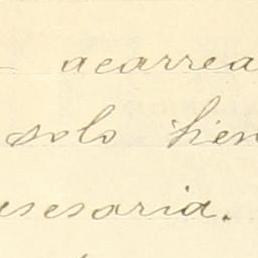 - acarrea
solo tien
asesoria.